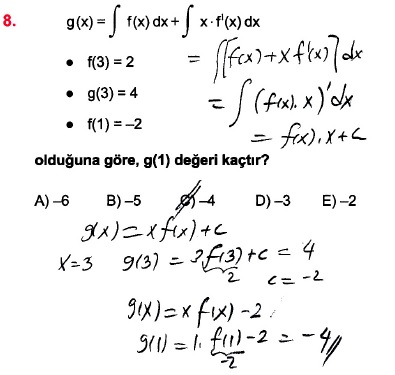 8. g(x) = ∫ f(x) dx + ∫ x · f'(x) dx
= ∫[f(x) + x f'(x)] dx
• f(3) = 2
• g(3) = 4
= ∫ (f(x). x)' dx
• f(1) = –2
= f(x). x + c
olduğuna göre, g(1) değeri kaçtır?
A) –6 B) –5 C) –4 D) –3 E) –2
g(x) = x f(x) + c
x = 3 g(3) = 3 f(3) + c = 4
2 c = -2
g(x) = x f(x) - 2
g(1) = 1. f(1) - 2 = -4 //
-2